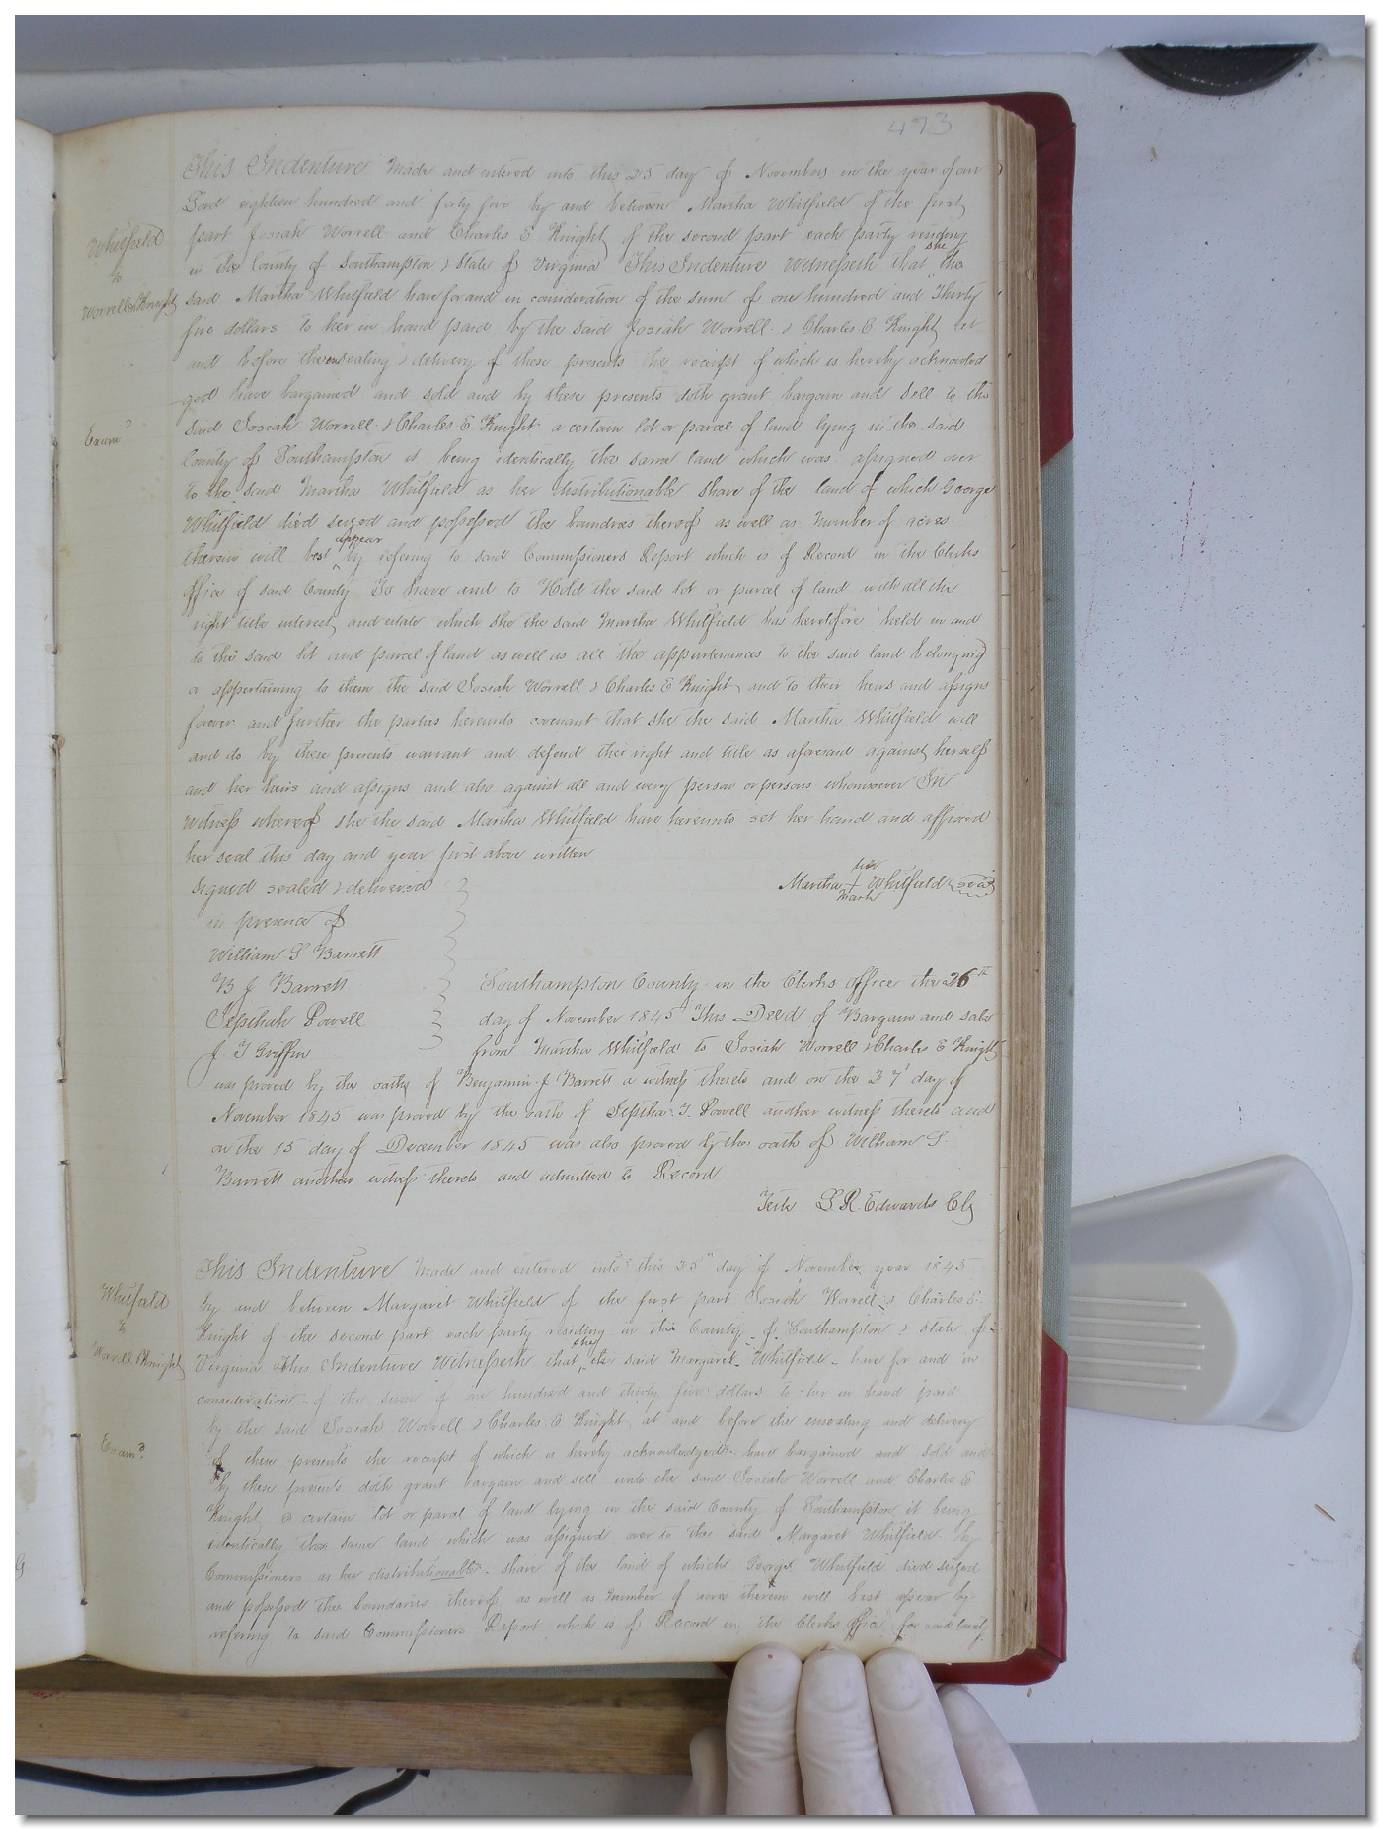 473
This Indenture Made and entered into this 25 day of November in the year of our
Lord eighteen hundred and forty five by and between Martha Whitfield of the first
part Josiah Worrell and Charles E Knight of the second part each party residing
in the County of Southampton & State of Virginia This Indenture Witnesseth that she the
said Martha Whitfield have for and in consideration of the sum of one hundred and Thirty
five dollars to her in hand paid by the said Josiah Worrell & Charles E Knight at
and before the ensealing & delivery of these presents the receipt of which is hereby acknowled
ged have bargained and sold and by these presents doth grant bargain and sell to the
said Josiah Worrell & Charles E Knight a certain lot or parcel of land lying in the said
County of Southampton it being identically the same land which was assigned over
to the said Martha Whitfield as her distributionable share of the land of which George
Whitfield died seized and possessed the boundries thereof as well as Number of acres
therein will best appear by refering to said Commissioners Report which is of Record in the Clerks
office of said County To have and to Hold the said lot or parcel of land with all the
right title interest and estate which she the said Martha Whitfield has heretofore held in and
to the said lot and parcel of land as well as all the appurtenances to the said land belonging
or appertaining to them the said Josiah Worrell & Charles E Knight and to their heirs and assigns
forever and further the parties hereunto covenant that she the said Martha Whitfield will
and do by these presents warrant and defend the right and title as aforesaid against herself
and her heirs and assigns and also against all and every person or persons whomsoever In
witness whereof she the said Martha Whitfield have hereunto set her hand and affixed
her seal this day and year first above written
Signed sealed & delivered
in presence of
William S Barrett
B J Barrett
Jepthah Powell
J T Griffin
her
Martha + Whitfield seal
mark
Southampton County in the Clerks office the 26th
day of November 1845 This Deed of Bargain and sale
from Martha Whitfield to Josiah Worrell & Charles E Knight
was proved by the oath of Benjamin J Barrett a witness thereto and on the 27 day of
November 1845 was proved by the oath of Jeptha T. Powell another witness thereto and
on the 15 day of December 1845 was also proved by the oath of William S.
Barrett another witness thereto and admitted to Record
Teste L R. Edwards Clk
Whitfield
to
Worrell & Knight
Exam.d
This Indenture Made and entered into this 25" day of November year 1845
by and between Margaret Whitfield of the first part Josiah Worrell & Charles E.
Knight of the second part each party residing in the County of Southampton & State of
Virginia This Indenture Witnesseth that she the said Margaret Whitfield have for and in
consideration of the sum of one hundred and thirty five dollars to her in hand paid
by the said Josiah Worrell & Charles E Knight at and before the ensealing and delivery
of these presents the receipt of which is hereby acknowledged have bargained and sold and
by these presents doth grant bargain and sell unto the said Josiah Worrell and Charles E
Knight a certain lot or parcel of land lying in the said County of Southampton it being
identically the same land which was assigned over to the said Margaret Whitfield by
Commissioners as her distributionable share of the land of which George Whitfield died seized
and possessed the boundaries thereof as well as Number of acres therein will best appear by
refering to said Commissioners Report which is of Record in the Clerks office for said County
Whitfield
to
Worrell & Knight
Exam.d